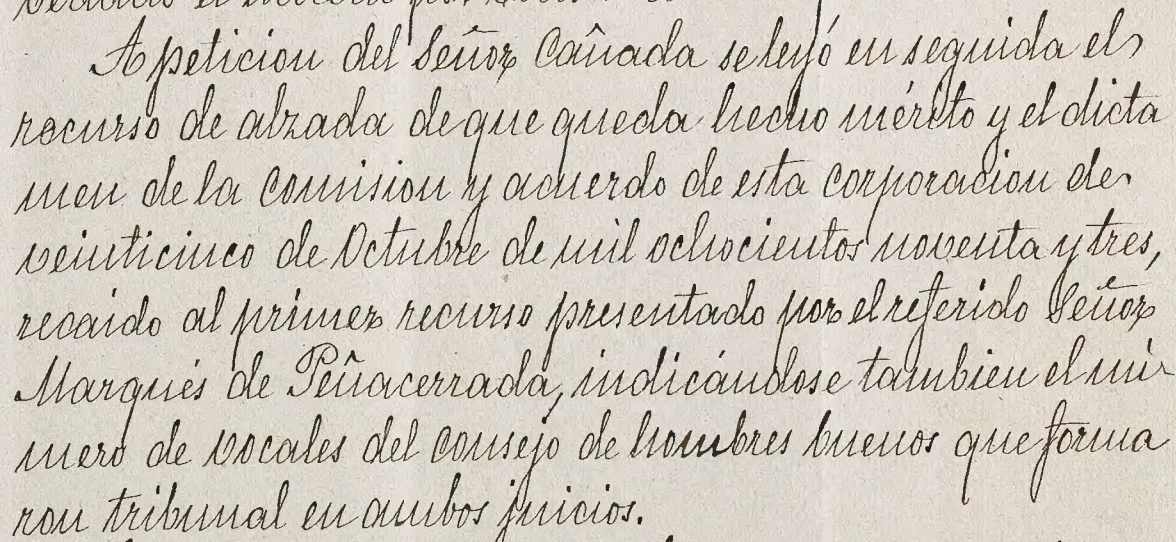 A peticion del Señor Cañada se leyó en seguida el
recurso de alzada de que queda hecho mérito y el dicta
men de la Comision y acuerdo de esta corporacion de
veinticinco de Octubre de mil ochocientos noventa y tres,
recaido al primer recurso presentado por el referido Señor
Marqués de Peñacerrada, indicándose tambien el nú-
mero de vocales del consejo de hombres buenos que forma
ron tribunal en ambos juicios.